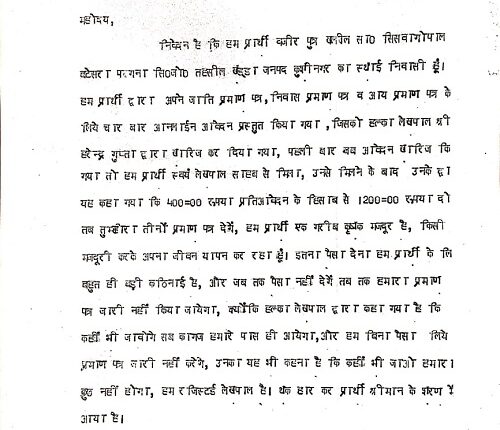 महोदय,
निवेदन है कि हम प्रार्थी वजीर पुत्र वकील सा0 सिसवागोपाल
बटेसरा परगना सि0जो0 तहसील खड्डा जनपद कुशीनगर का स्थाई निवासी हूँ।
हम प्रार्थी द्वारा अपने जाति प्रमाण पत्र, निवास प्रमाण पत्र व आय प्रमाण पत्र के
लिये चार बार आनलाईन आवेदन प्रस्तुत किया गया, जिसको हल्का लेखपाल श्री
हरेन्द्र गुप्ता द्वारा खारिज कर दिया गया, पहली बार जब आवेदन खारिज कि
गया तो हम प्रार्थी स्वयं लेखपाल साहब से मिला, उनसे मिलने के बाद उनके द्वा
यह कहा गया कि 400=00 रूपया प्रतिआवेदन के हिसाब से 1200=00 रूपया दो
तब तुम्हारा तीनों प्रमाण पत्र देगें, हम प्रार्थी एक गरीब कृषक मजदूर है, किसी
मजदूरी करके अपना जीवन यापन कर रहा हूँ। इतना पैसा देना हम प्रार्थी के लि
बहुत ही बड़ी कठिनाई है, और जब तक पैसा नहीं देगें तब तक हमारा प्रमाण
पत्र जारी नहीं किया जायेगा, क्योंकि हल्का लेखपाल द्वारा कहा गया है कि
कहीं भी जावोगे सब कागज हमारे पास ही आयेगा,और हम बिना पैसा लिये
प्रमाण पत्र जारी नहीं करेगे, उनका यह भी कहना है कि कहीं भी जाओ हमारा
कुछ नहीं होगा, हम रजिस्टर्ड लेखपाल है। थक हार कर प्रार्थी श्रीमान के शरण में
आया है।